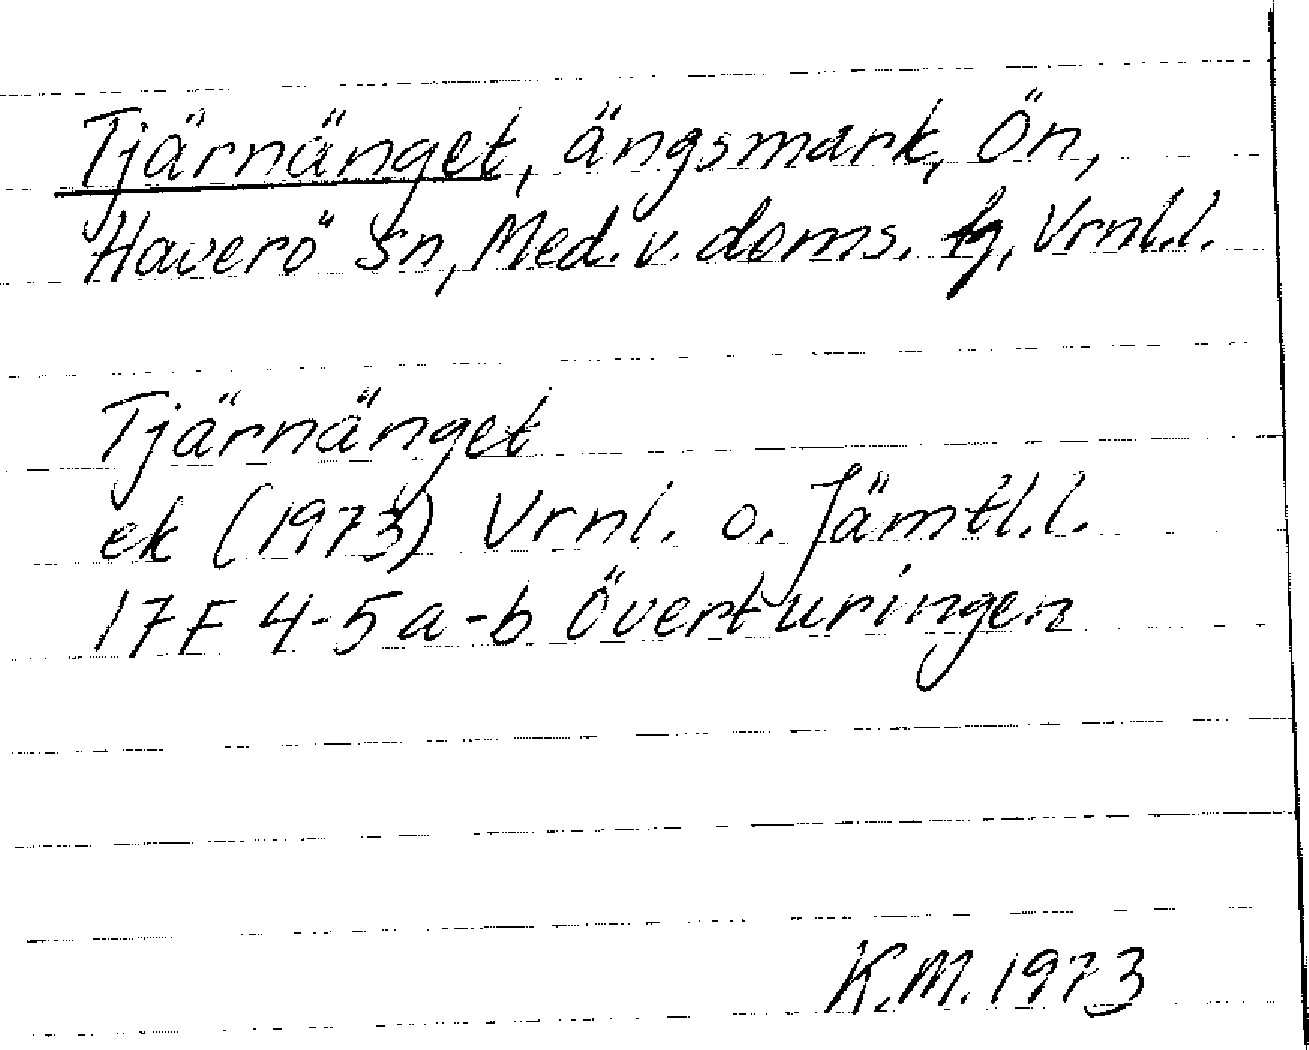 Tjärnänget, ängsmark, Ön,
Haverö Sn, Med. v. doms. fg, Vrnl.l.
Tjärnänget
ek (1973) Vrnl. o. Jämtl.l.
17F 4-5a-b Överturingen
K.M. 1973